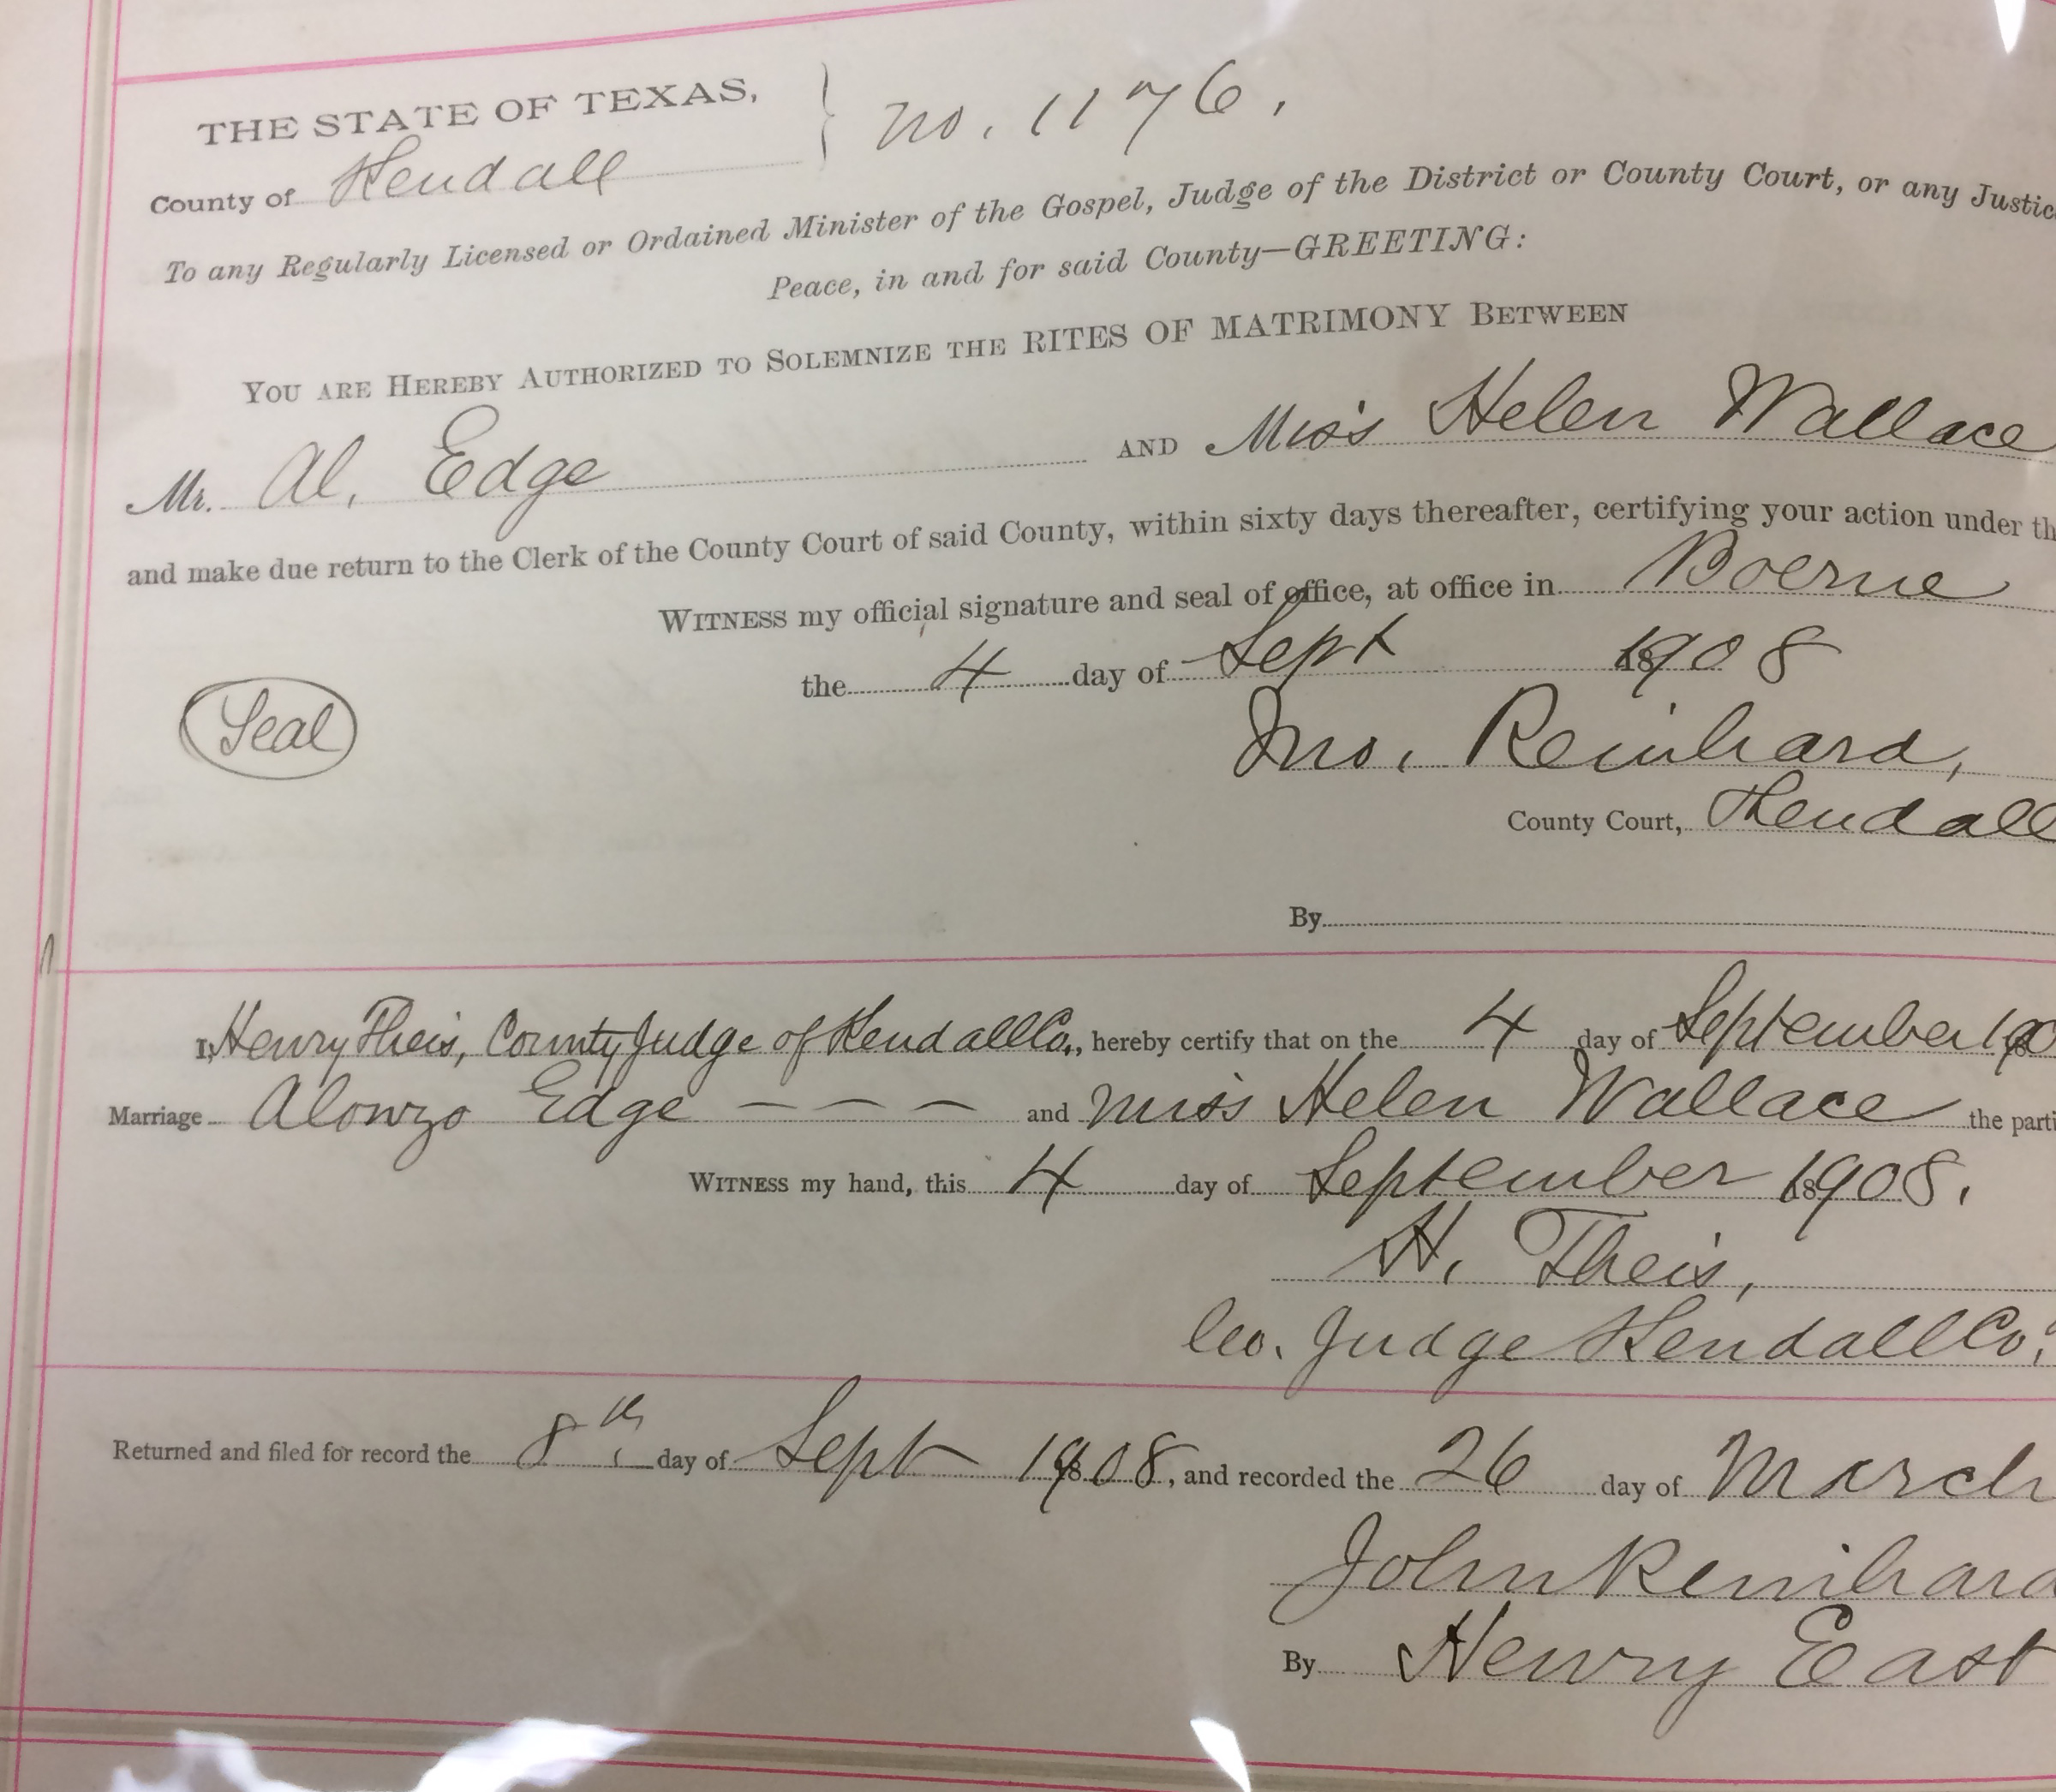 THE STATE OF TEXAS, } No. 1176.
County of Kendall
To any Regularly Licensed or Ordained Minister of the Gospel, Judge of the District or County Court, or any Justic
Peace, in and for said County—GREETING:
YOU ARE HEREBY AUTHORIZED TO SOLEMNIZE THE RITES OF MATRIMONY BETWEEN
Mr. Al. Edge AND Miss Helen Wallace
and make due return to the Clerk of the County Court of said County, within sixty days thereafter, certifying your action under th
WITNESS my official signature and seal of office, at office in Boerne
the 4 day of Sept 1908
Seal
Jno. Reinhard,
County Court, Kendall
By
I, Henry Theis, County Judge of Kendall Co., hereby certify that on the 4 day of September 190
Marriage Alonzo Edge – – – and Miss Helen Wallace the parti
WITNESS my hand, this 4 day of September 1908.
H. Theis,
Co. Judge Kendall Co.
Returned and filed for record the 8th day of Sept 1908, and recorded the 26 day of March
John Reinhard
By Henry East